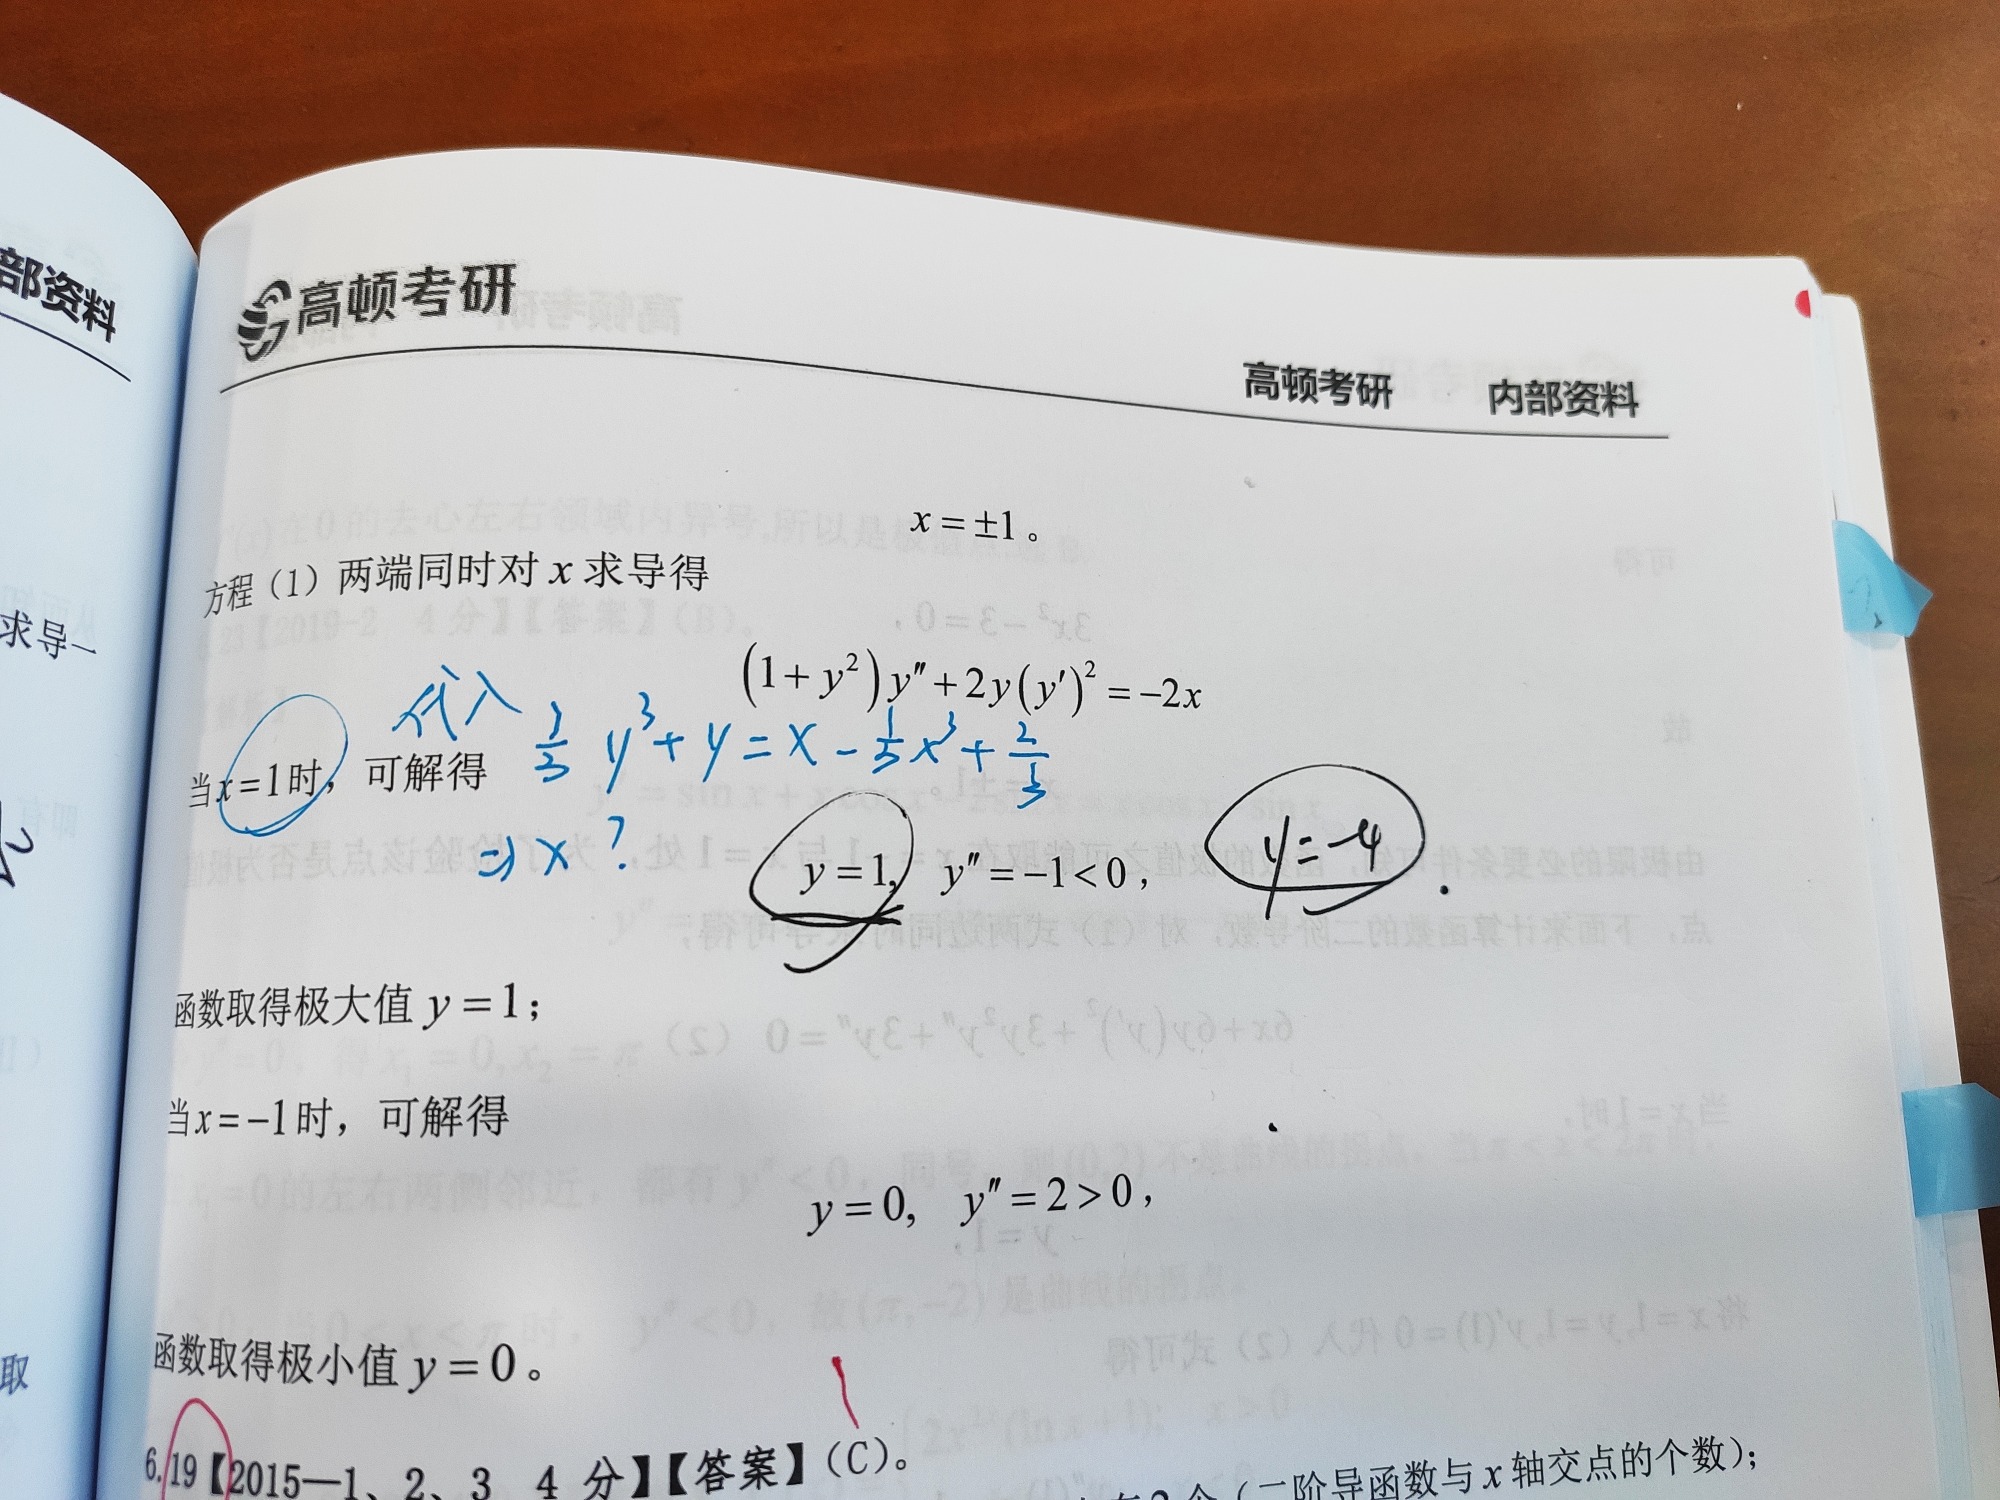 部资料
高顿考研
高顿考研 内部资料
x = ±1。
方程（1）两端同时对 x 求导得
求导一
(1+y²)y″+2y(y′)²=-2x
代入
1/3 y³+y=x-1/3x³+2/3
当x=1时，可解得
⇒ x ?
y=1, y″=-1<0，
y=-4
函数取得极大值 y=1；
当x=-1时，可解得
y=0, y″=2>0，
函数取得极小值 y=0。
取
6.19【2015—1、2、3 4 分】【答案】（C）。
（二阶导函数与 x 轴交点的个数）；